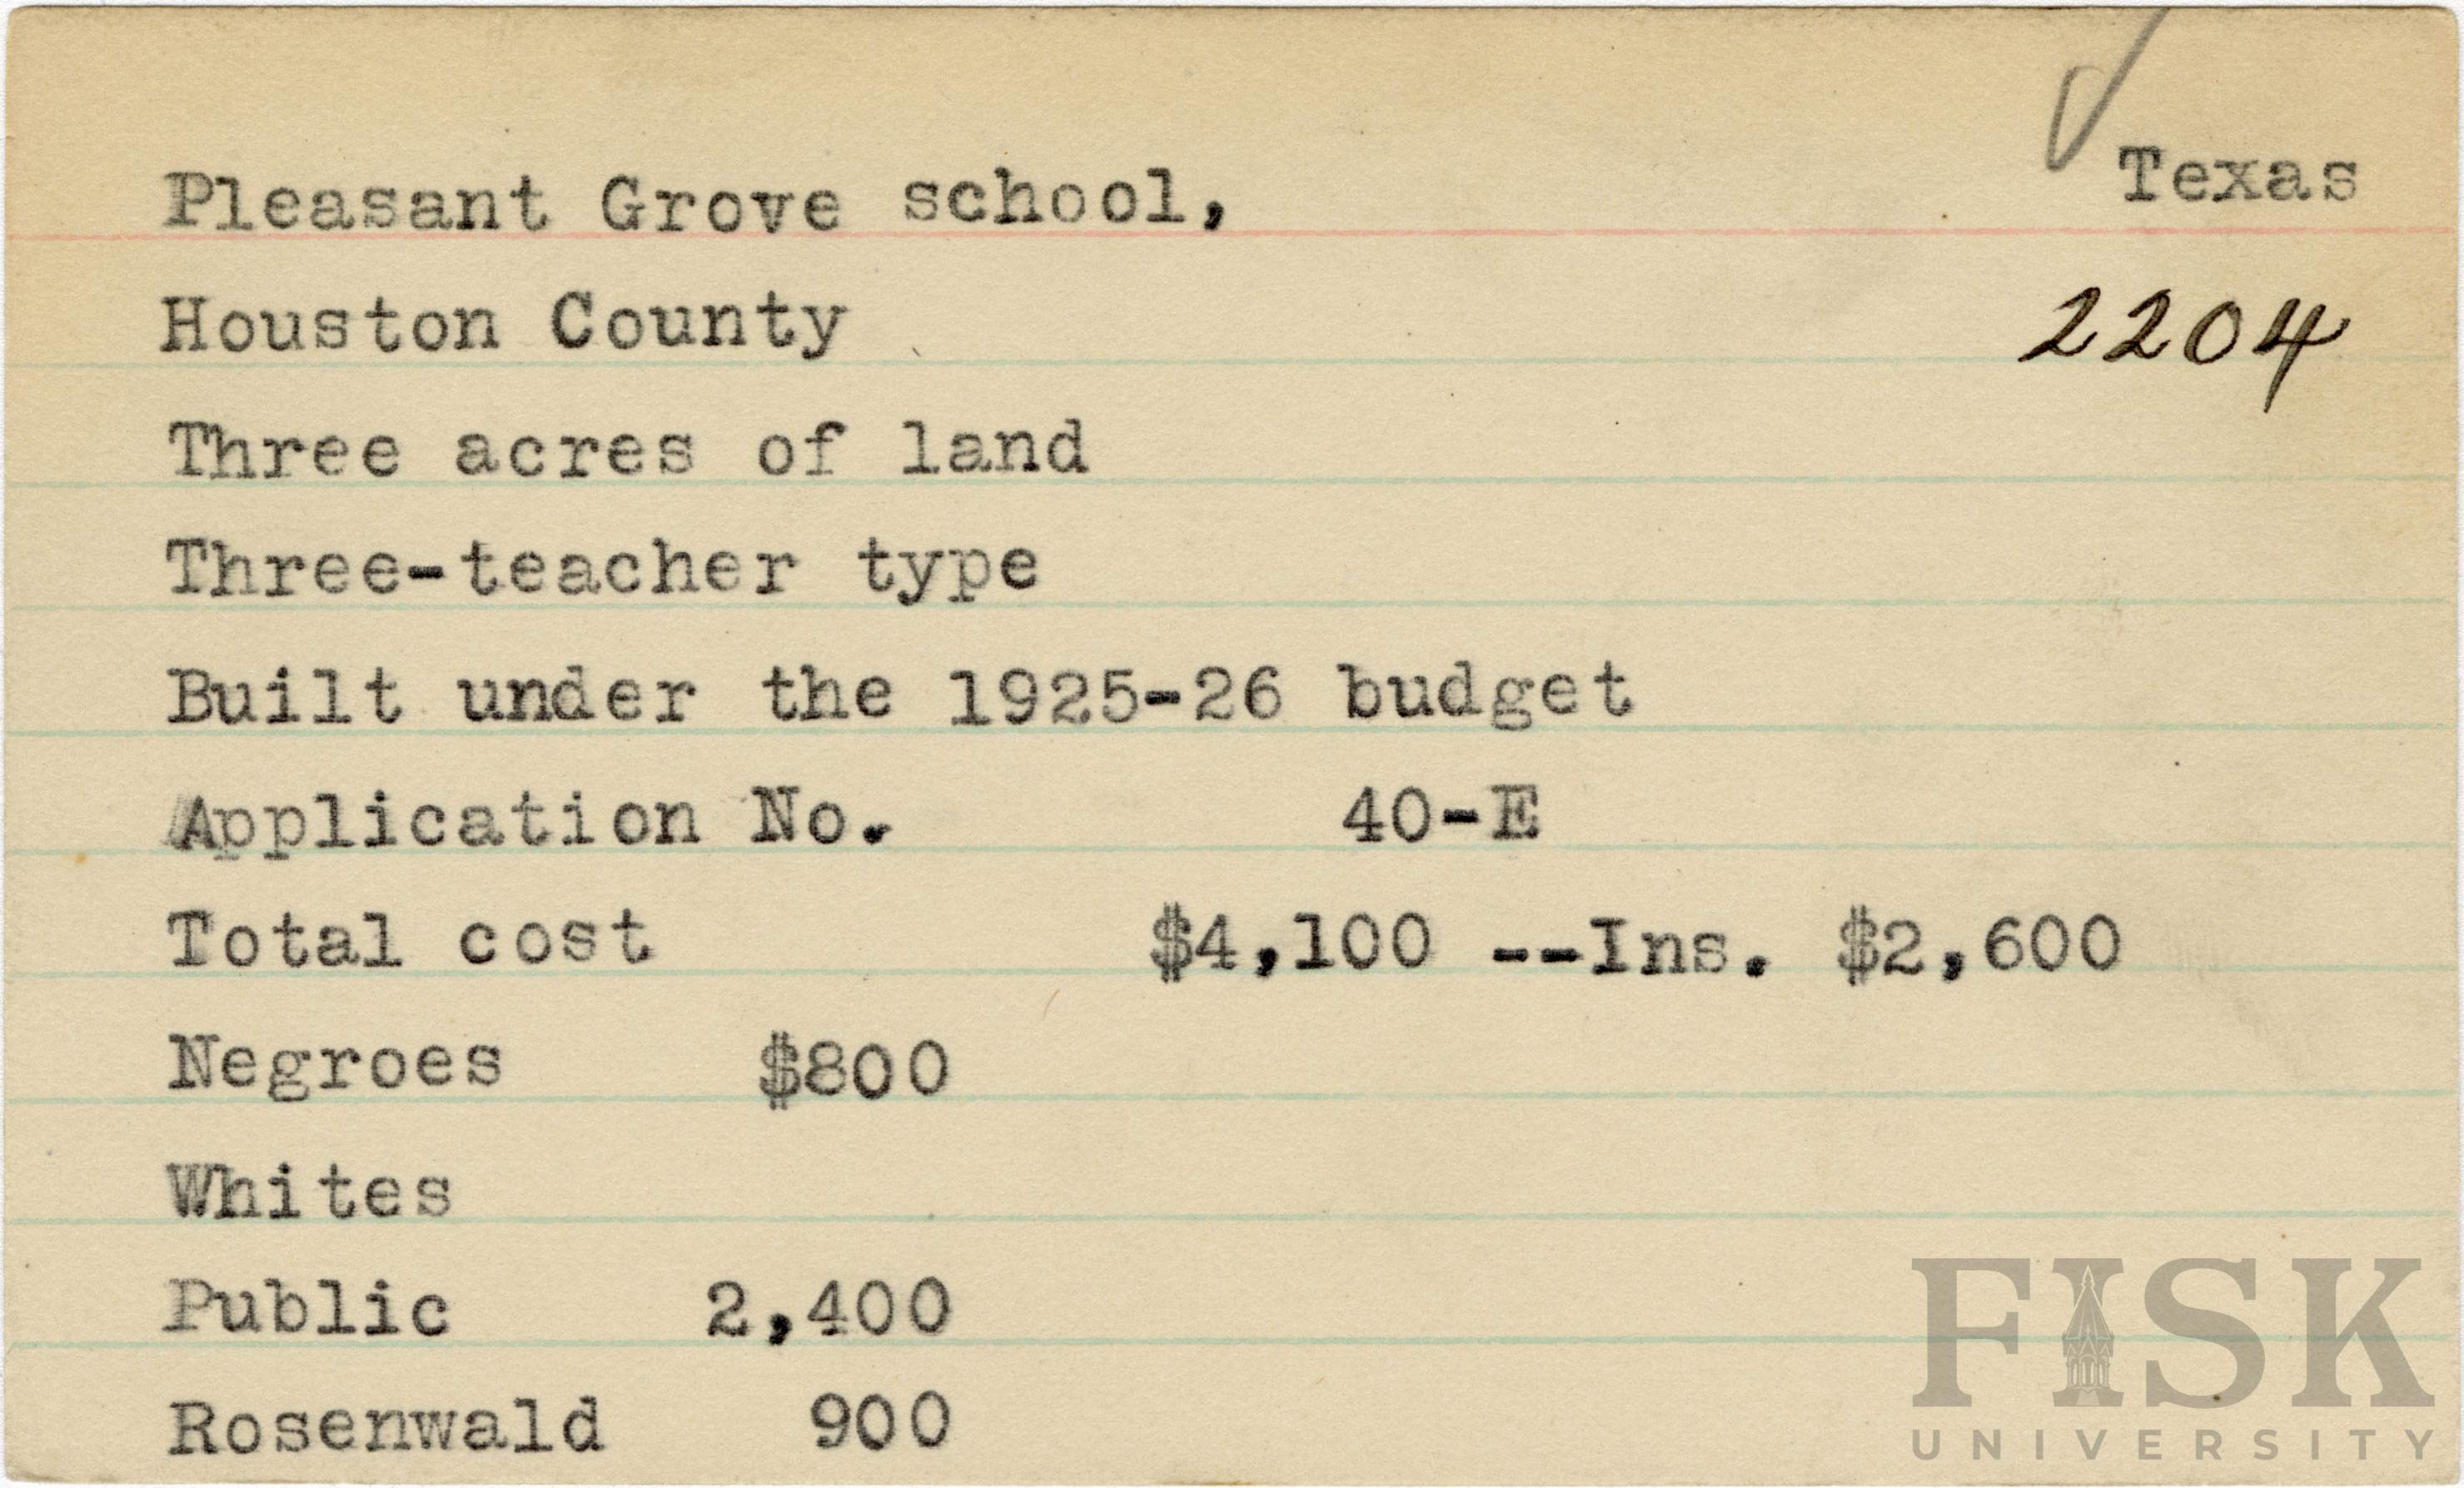 Pleasant Grove school, Texas
Houston County 2204
Three acres of land
Three-teacher type
Built under the 1925-26 budget
Application No. 40-E
Total cost $4,100 --Ins. $2,600
Negroes $800
Whites
Public 2,400
Rosenwald 900
FISK
UNIVERSITY